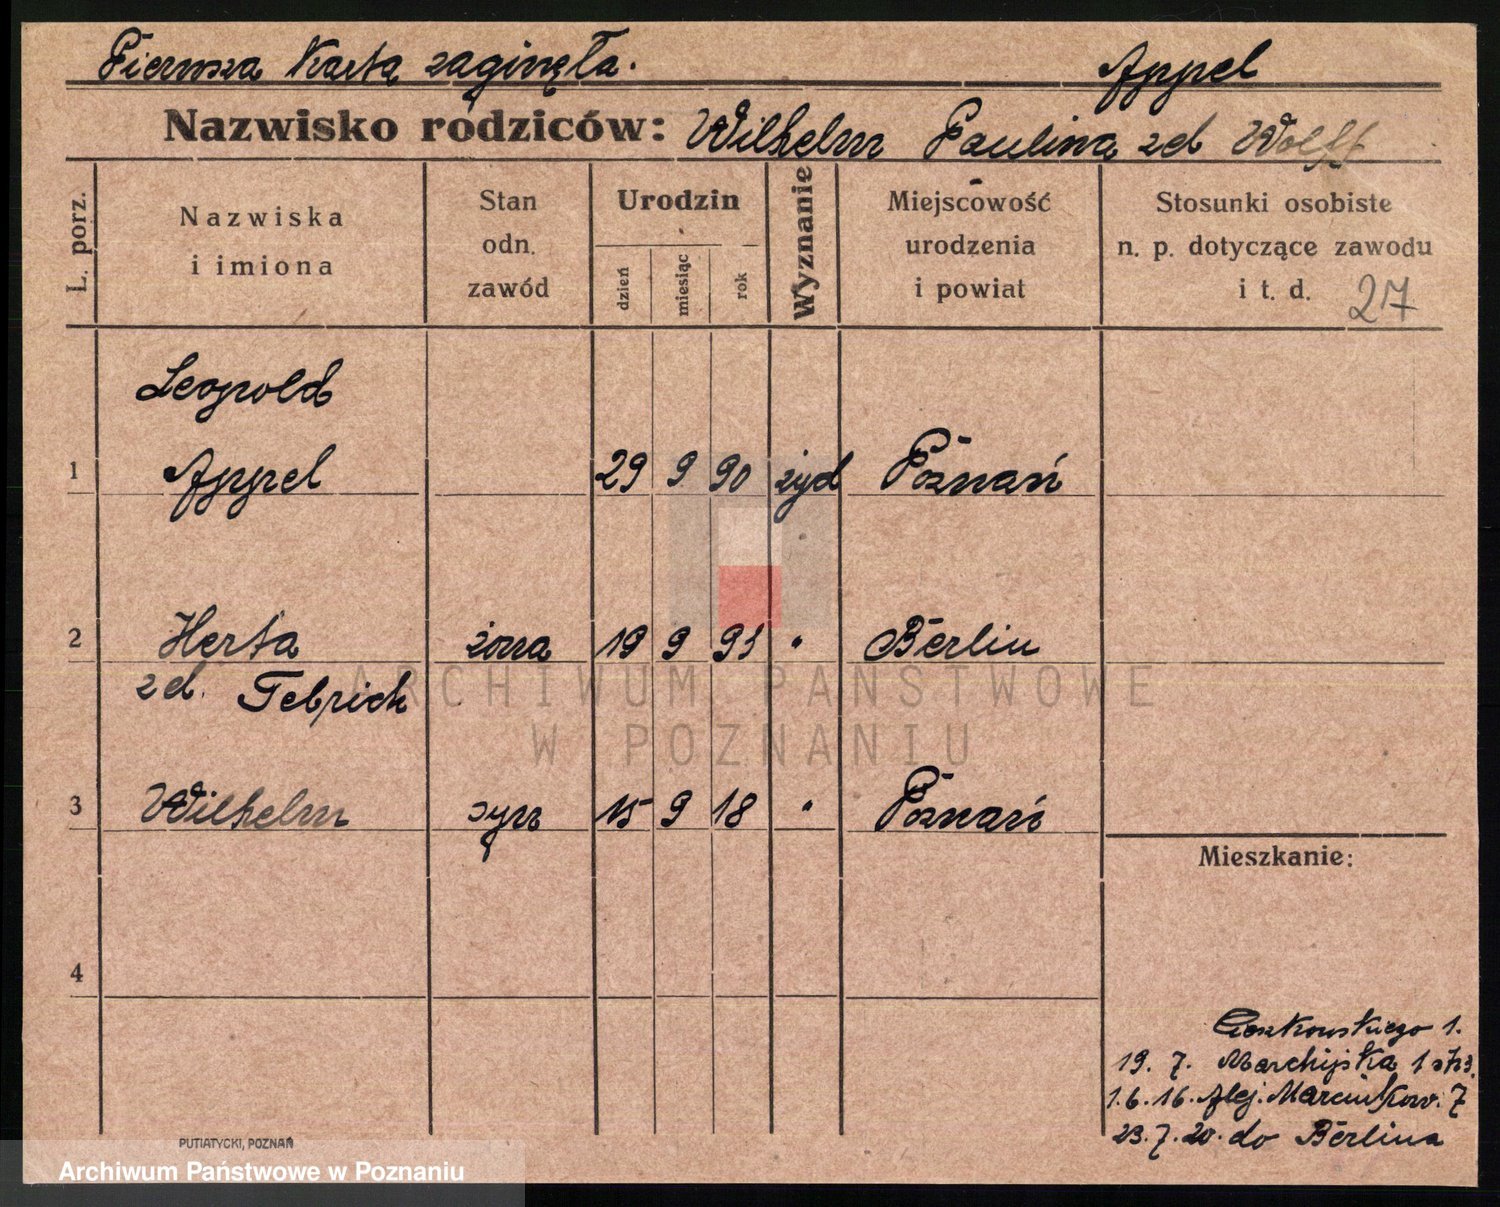 Pierwsza Karta zaginęła. Appel
Nazwisko rodziców: Wilhelm Paulina zd Wolff
L. porz.
Nazwiska
i imiona
Stan
odn.
zawód
Urodzin
dzień
miesiąc
rok
Wyznanie
Miejscowość
urodzenia
i powiat
Stosunki osobiste
n. p. dotyczące zawodu
i t. d. 27
Leopold
1 Appel 29 9 90 żyd Poznań
2 Herta żona 19 9 91 " Berlin
zd.
3 Wilhelm syn 15 9 18 " Poznań
Mieszkanie:
4
Cieszkowskiego 1.
19. 7. 1
1.6.16. Alej. Marcinkow. 7
23.7.20. do Berlina
PUTIATYCKI, POZNAŃ
ARCHIWUM PAŃSTWOWE
W POZNANIU
Archiwum Państwowe w Poznaniu